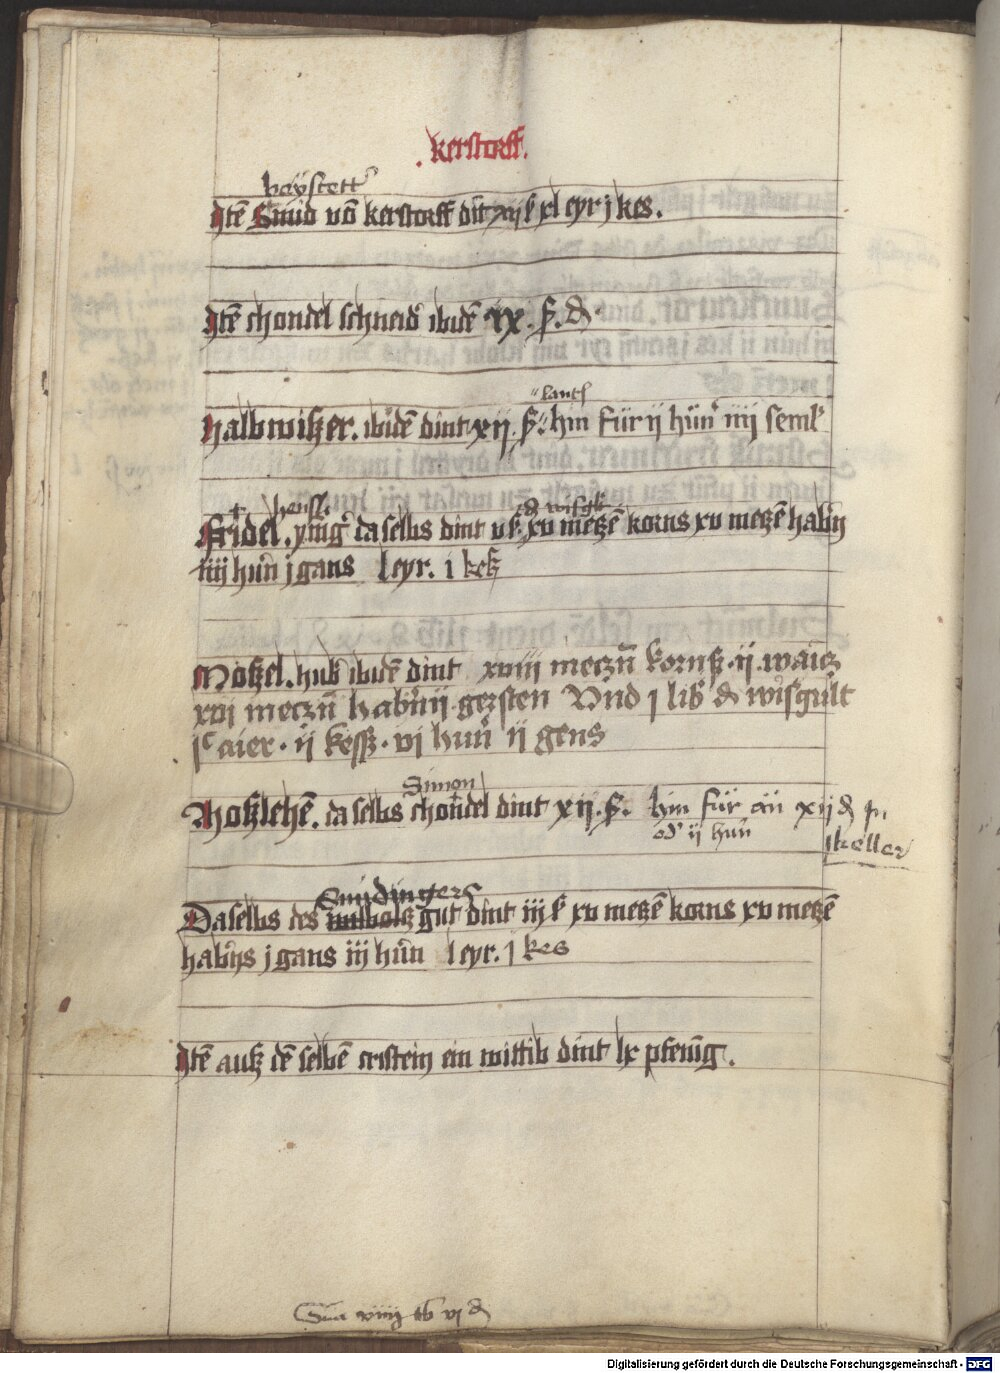 kerstorff.
haystett
Itē Smid vō kerstorff dit xij ß xl eyr j kes.
Itē chondel schneid ibidē ix. ß. đ
lantß
halbwitzer. ibidē dint xij. ß. hin für ij hün iiij seml
henssl đ wißgült
Fridel. yring daselbs dint v ß xv metzē korns xv metzē habn
iiij hün j gans l eyr. j kesz
Motzel. hub ibidē dint xviij meczn̄ kornß. ij. waicz
xvij meczn̄ habn iij gersten Vnd j lib đ wisgült
jc aier. ij kesß. vj hün ij gens
Simon
Motzlehē. daselbs chondel dint xij. ß. hin für ain xij đ In
od ij hün
keller
Smidingers
Daselbs des gut dint iij ß xv metzē korns xv metzē
habns j gans iij hün l eyr. j kes
Itē ausz dē selbē cristein ein wittib dint lx pfenīg.
Sūa viiij lb vj đ
Digitalisierung gefördert durch die Deutsche Forschungsgemeinschaft - DFG